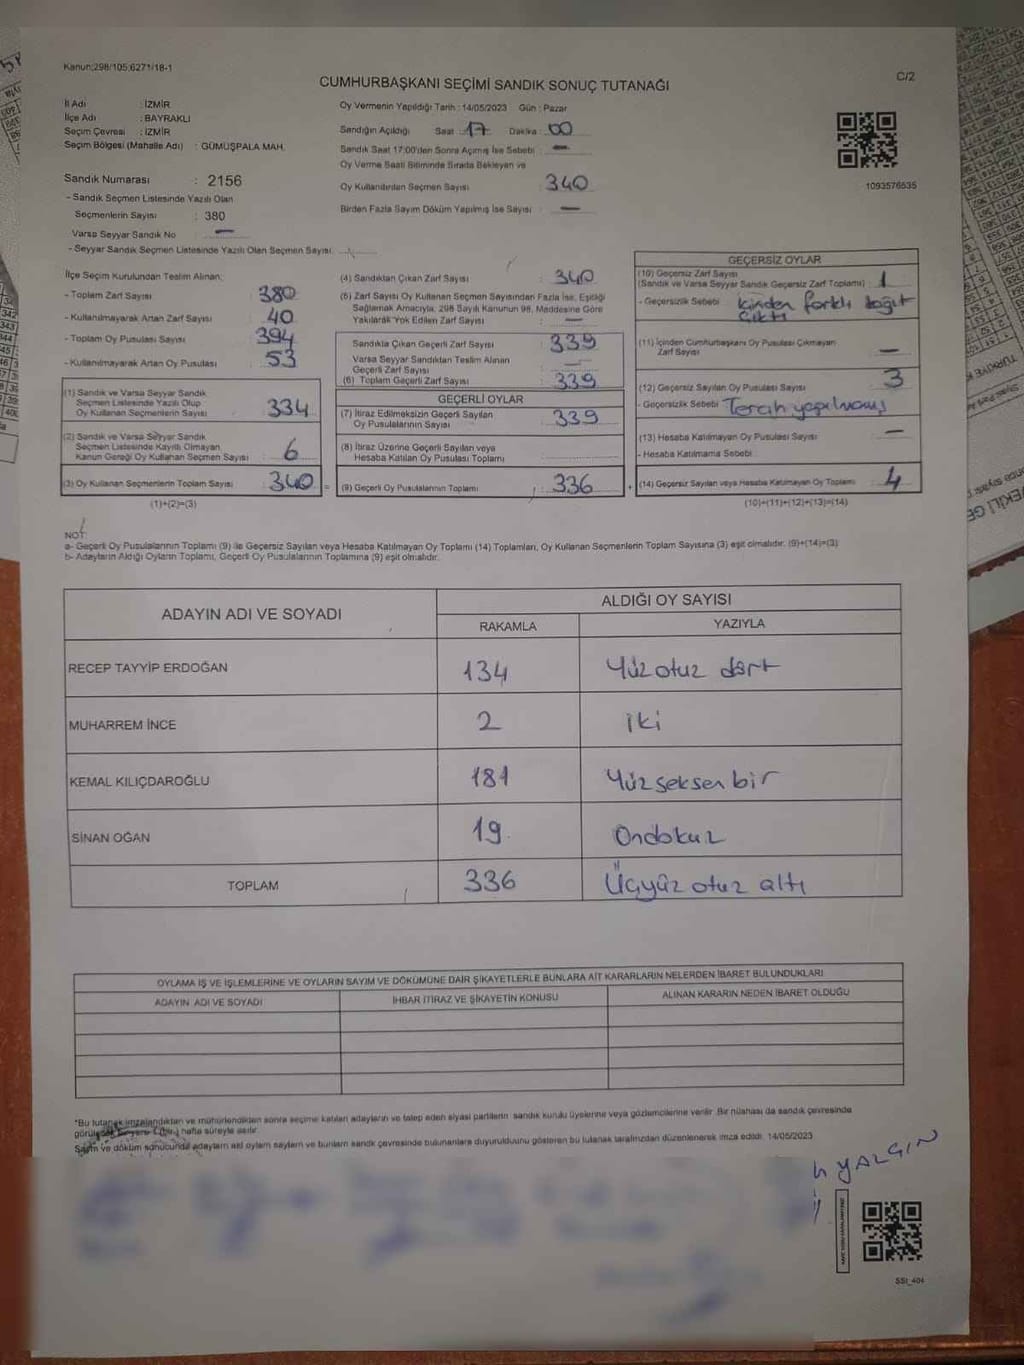 Kanun:298/105;6271/18-1
C/2
CUMHURBAŞKANI SEÇİMİ SANDIK SONUÇ TUTANAĞI
İl Adı : İZMİR
İlçe Adı : BAYRAKLI
Seçim Çevresi : İZMİR
Seçim Bölgesi (Mahalle Adı) : GÜMÜŞPALA MAH.
Sandık Numarası : 2156
- Sandık Seçmen Listesinde Yazılı Olan
Seçmenlerin Sayısı : 380
Varsa Seyyar Sandık No —
- Seyyar Sandık Seçmen Listesinde Yazılı Olan Seçmen Sayısı:
Oy Vermenin Yapıldığı Tarih : 14/05/2023 Gün : Pazar
Sandığın Açıldığı Saat : 17 Dakika : 00
Sandık Saat 17:00'den Sonra Açımış İse Sebebi : —
Oy Verme Saati Bitiminde Sırada Bekleyen ve
Oy Kullandırılan Seçmen Sayısı 340
Birden Fazla Sayım Döküm Yapılmış İse Sayısı : —
1093576535
İlçe Seçim Kurulundan Teslim Alınan;
- Toplam Zarf Sayısı : 380
- Kullanılmayarak Artan Zarf Sayısı : 40
- Toplam Oy Pusulası Sayısı : 394
- Kullanılmayarak Artan Oy Pusulası : 53
(1) Sandık ve Varsa Seyyar Sandık
Seçmen Listesinde Yazılı Olup
Oy Kullanan Seçmenlerin Sayısı : 334
(2) Sandık ve Varsa Seyyar Sandık
Seçmen Listesinde Kayıtlı Olmayan
Kanun Gereği Oy Kullanan Seçmen Sayısı : 6
(3) Oy Kullanan Seçmenlerin Toplam Sayısı : 340 =
(1)+(2)=(3)
(4) Sandıktan Çıkan Zarf Sayısı : 340
(5) Zarf Sayısı Oy Kullanan Seçmen Sayısından Fazla İse, Eşitliği
Sağlamak Amacıyla, 298 Sayılı Kanunun 98. Maddesine Göre
Yakılarak Yok Edilen Zarf Sayısı : —
Sandıkla Çıkan Geçerli Zarf Sayısı : 339
Varsa Seyyar Sandıktan Teslim Alınan
Geçerli Zarf Sayısı : —
(6) Toplam Geçerli Zarf Sayısı : 339
GEÇERLİ OYLAR
(7) İtiraz Edilmeksizin Geçerli Sayılan
Oy Pusulalarının Sayısı : 339
(8) İtiraz Üzerine Geçerli Sayılan veya
Hesaba Katılan Oy Pusulası Toplamı :
(9) Geçerli Oy Pusulalarının Toplamı : 336 +
GEÇERSİZ OYLAR
(10) Geçersiz Zarf Sayısı
(Sandık ve Varsa Seyyar Sandık Geçersiz Zarf Toplamı) : 1
- Geçersizlik Sebebi : içinden farklı kağıt
çıktı
(11) İçinden Cumhurbaşkanı Oy Pusulası Çıkmayan
Zarf Sayısı : —
(12) Geçersiz Sayılan Oy Pusulası Sayısı : 3
- Geçersizlik Sebebi Tercih yapılmamış
(13) Hesaba Katılmayan Oy Pusulası Sayısı : —
- Hesaba Katılmama Sebebi :
(14) Geçersiz Sayılan veya Hesaba Katılmayan Oy Toplamı : 4
(10)+(11)+(12)+(13)=(14)
NOT
a- Geçerli Oy Pusulalarının Toplamı (9) ile Geçersiz Sayılan veya Hesaba Katılmayan Oy Toplamı (14) Toplamları, Oy Kullanan Seçmenlerin Toplam Sayısına (3) eşit olmalıdır. (9)+(14)=(3)
b- Adayların Aldığı Oyların Toplamı, Geçerli Oy Pusulalarının Toplamına (9) eşit olmalıdır.
ADAYIN ADI VE SOYADI
ALDIĞI OY SAYISI
RAKAMLA YAZIYLA
RECEP TAYYİP ERDOĞAN 134 Yüz otuz dört
MUHARREM İNCE 2 iki
KEMAL KILIÇDAROĞLU 181 Yüzseksen bir
SİNAN OĞAN 19 Ondokuz
TOPLAM 336 Üçyüz otuz altı
OYLAMA İŞ VE İŞLEMLERİNE VE OYLARIN SAYIM VE DÖKÜMÜNE DAİR ŞİKAYETLERLE BUNLARA AİT KARARLARIN NELERDEN İBARET BULUNDUKLARI
ADAYIN ADI VE SOYADI İHBAR İTİRAZ VE ŞİKAYETİN KONUSU ALINAN KARARIN NEDEN İBARET OLDUĞU
*Bu tutanak imzalandıktan ve mühürlendikten sonra seçime katılan adayların ve talep eden siyasi partilerin sandık kurulu üyelerine veya gözlemcilerine verilir. Bir nüshası da sandık çevresinde
hafta süreyle asılır.
Sayım ve döküm sonucunda adayların asıl oyların sayıları ve bunların sandık çevresinde bulunanlara duyurulduunu gösteren bu tutanak tarafımızdan düzenlenerek imza edildi. 14/05/2023
YALGIN
SSI_404